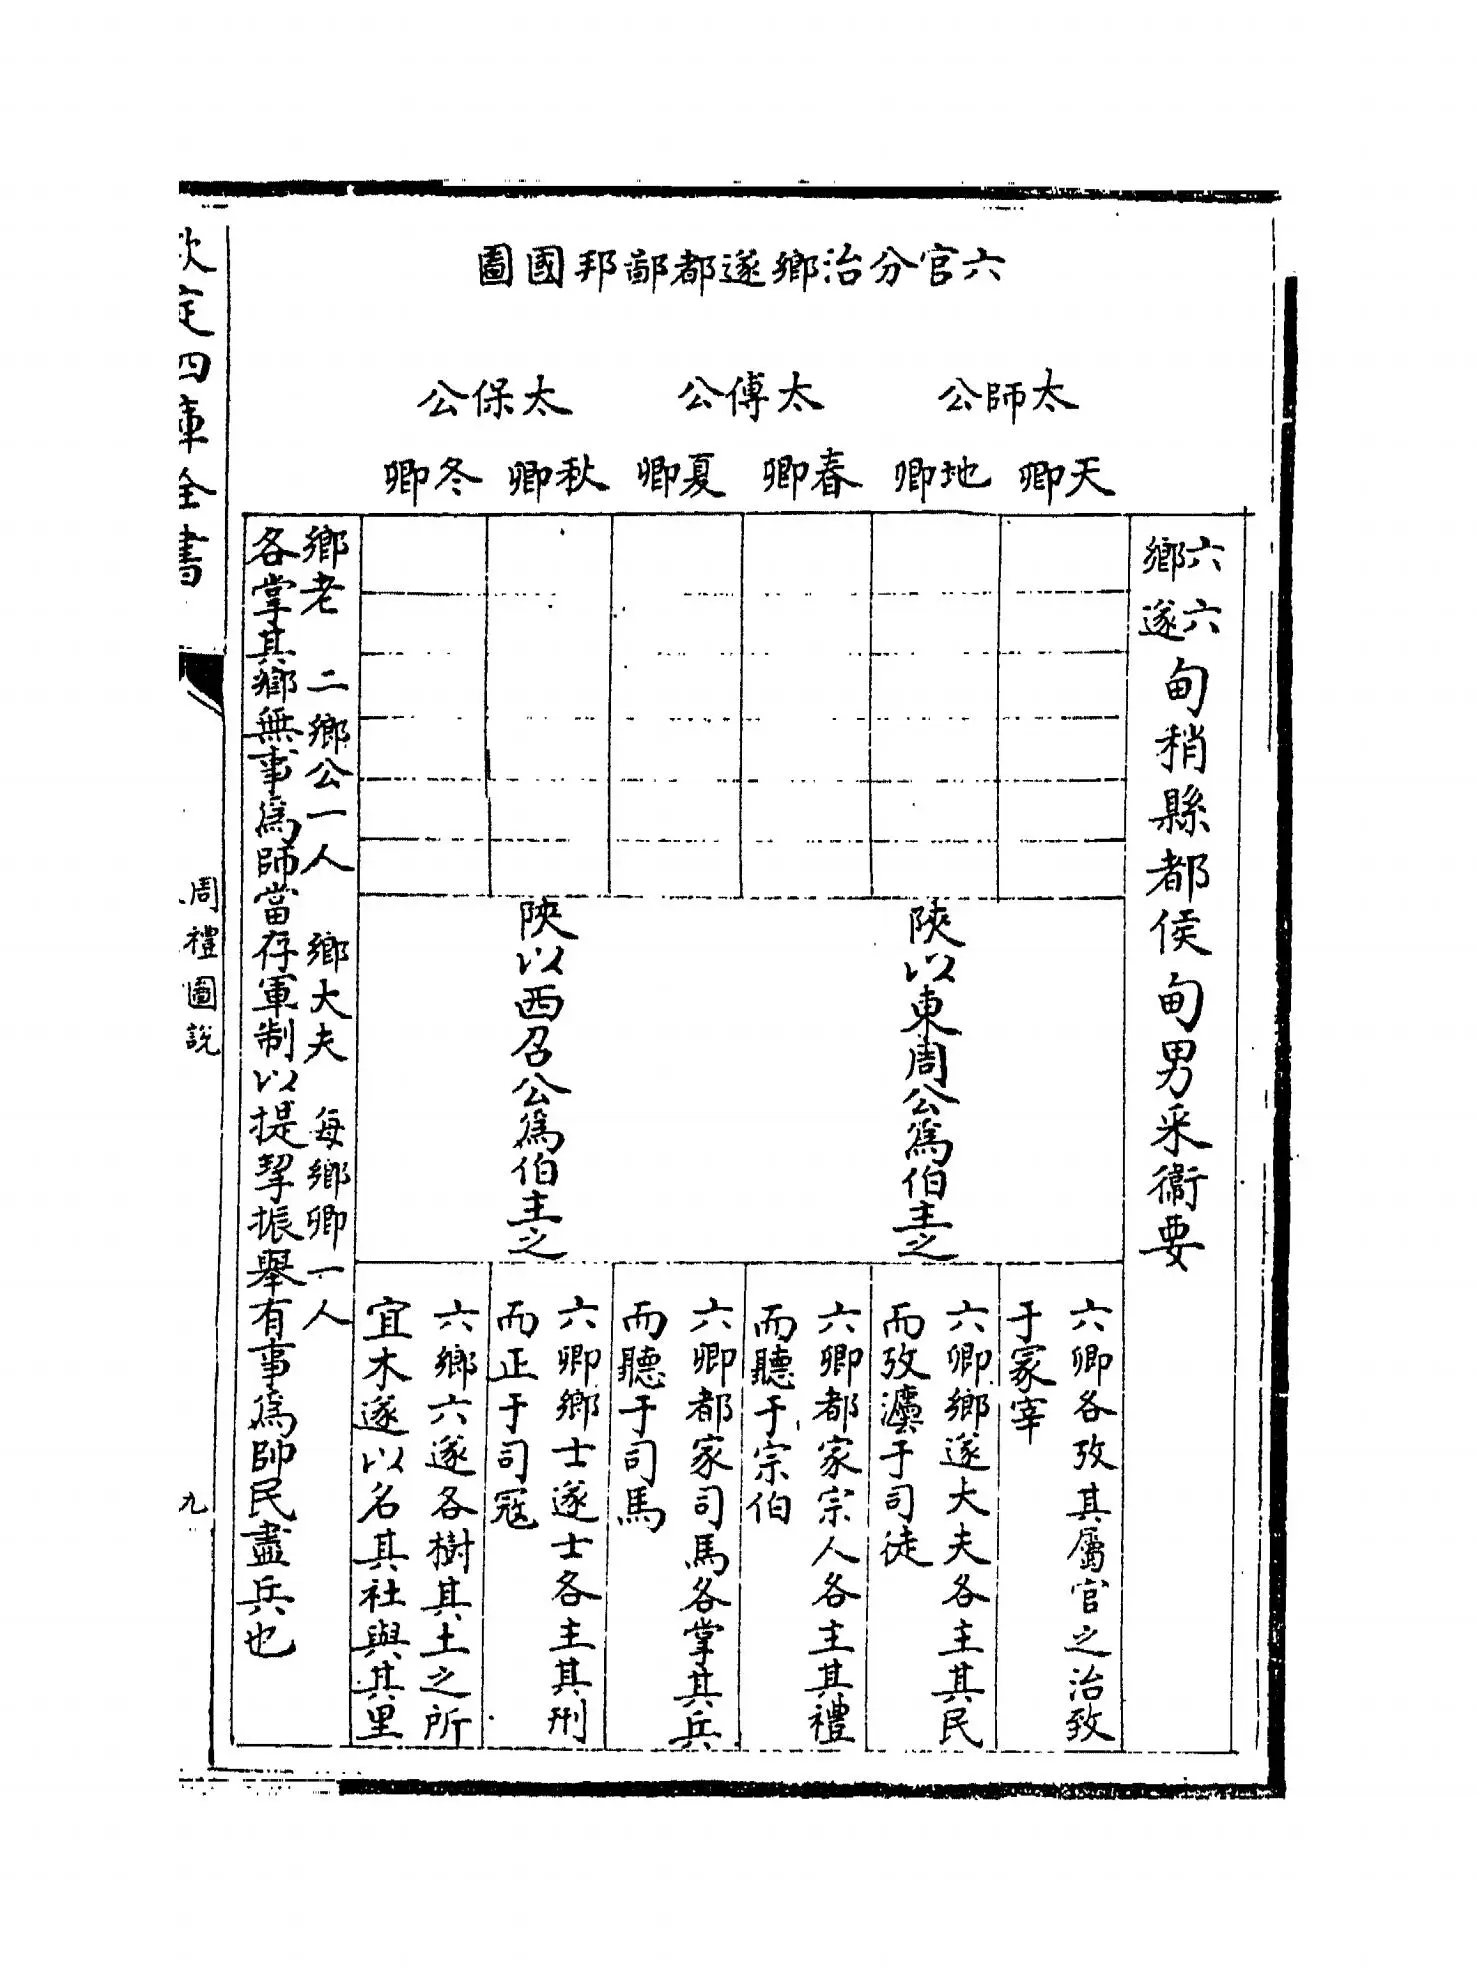 六官分治鄉遂都鄙邦國圖
太師公
太傅公
太保公
天卿
地卿
春卿
夏卿
秋卿
冬卿
六鄉
六遂
甸稍縣都侯甸男采衞要
陜以東周公為伯主之
陜以西召公為伯主之
六卿各攷其屬官之治致
于冢宰
六卿鄉遂大夫各主其民
而攷灋于司徒
六卿都家宗人各主其禮
而聽于宗伯
六卿都家司馬各掌其兵
而聽于司馬
六卿鄉士遂士各主其刑
而正于司寇
六鄉六遂各樹其土之所
宜木遂以名其社與其里
鄉老 二鄉公一人 鄉大夫 每鄉卿一人
各掌其鄉無事為師當存軍制以提挈振舉有事為帥民盡兵也
欽定四庫全書
周禮圖說
九